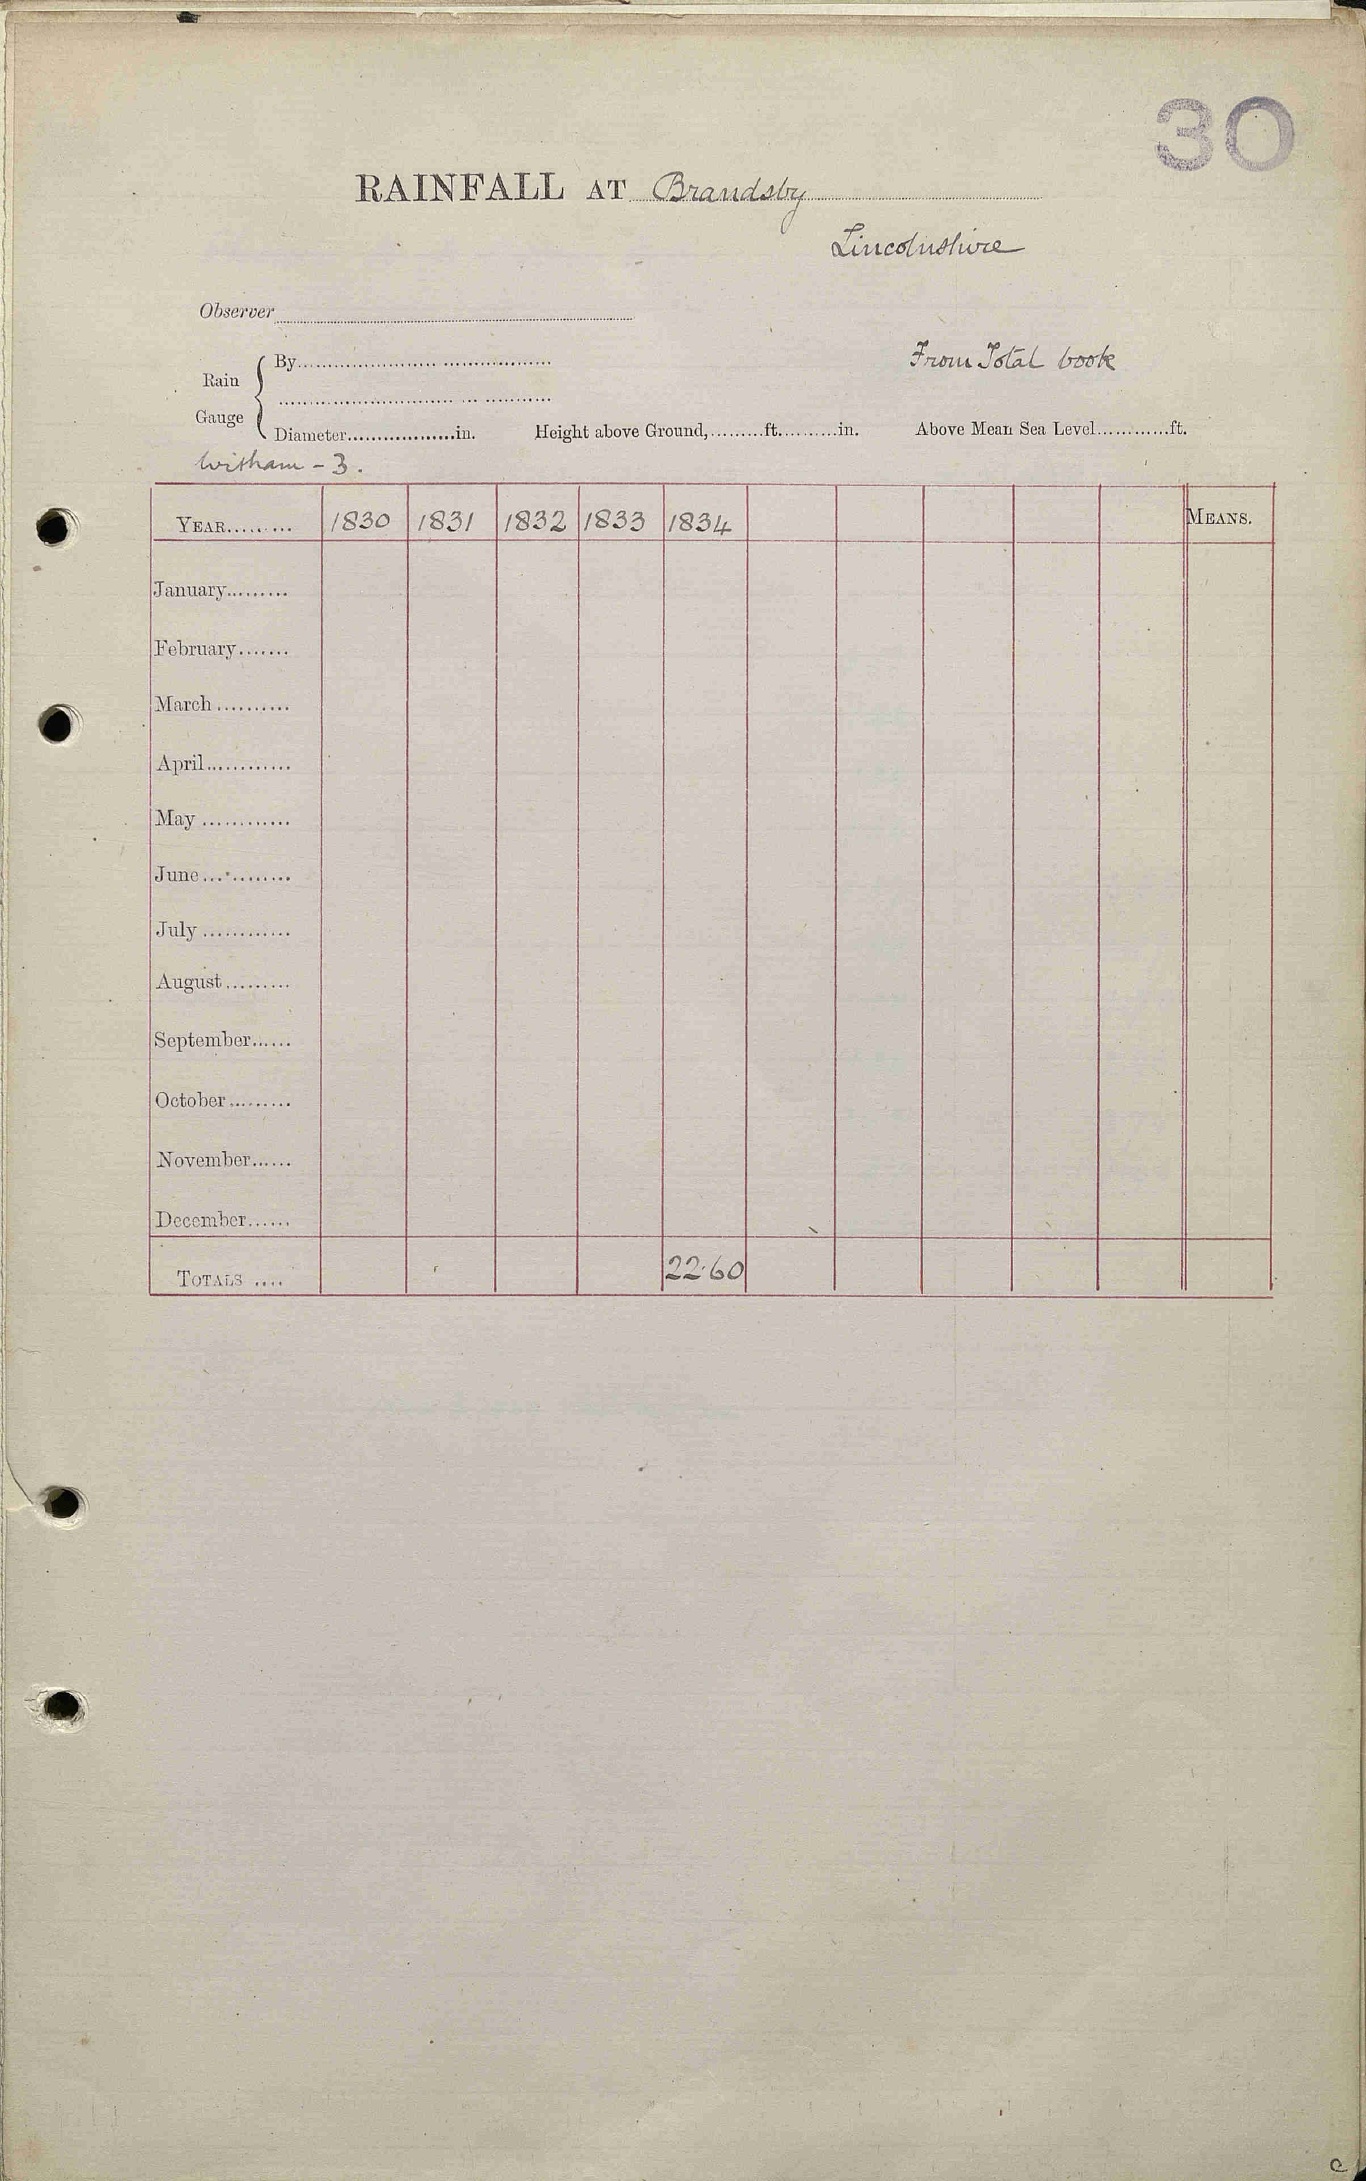 30
RAINFALL AT Brandsby
Lincolnshire
Observer
From Total book
Rain Gauge { By
Diameter..................in. Height above Ground,.........ft..........in. Above Mean Sea Level............ft.
Witham - 3.
YEAR......... 1830 1831 1832 1833 1834 MEANS.
January.........
February.......
March..........
April............
May............
June............
July............
August.........
September......
October.........
November......
December......
TOTALS .... 22.60
c